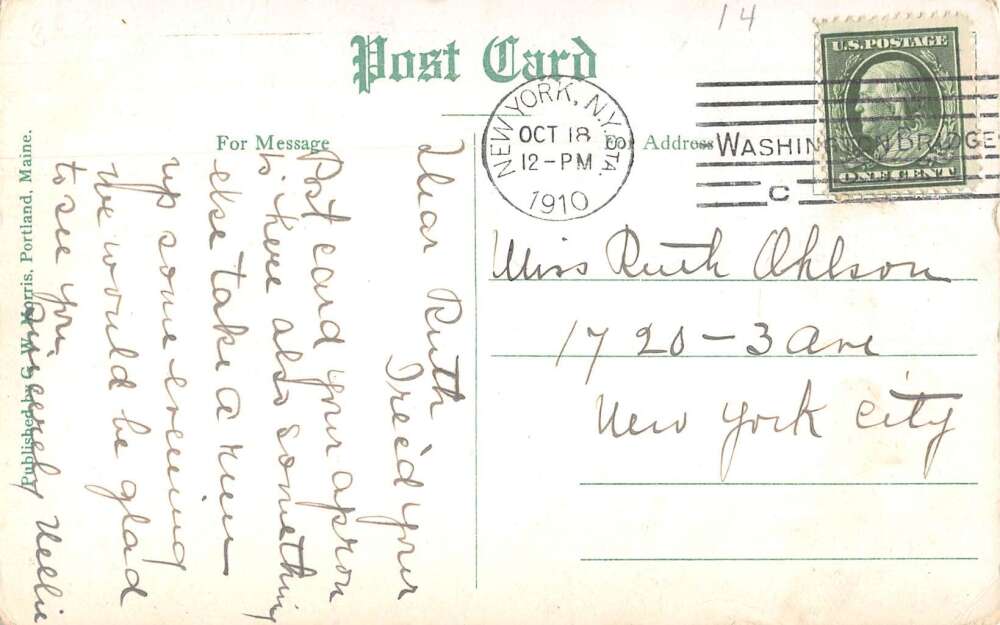 14
Post Card
U.S. POSTAGE
ONE CENT
NEW YORK, N.Y. STA.
OCT 18
12-PM
1910
C
WASHINGTON BRIDGE
For Message
For Address
Dear Ruth
Rec'd your
Post card your apron
is here also something
else take a run
up some evening
We would be glad
to see you
Sincerely Nellie
Miss Ruth Ohlson
1720-3 Ave
New York City
Published by G. W. Morris, Portland, Maine.